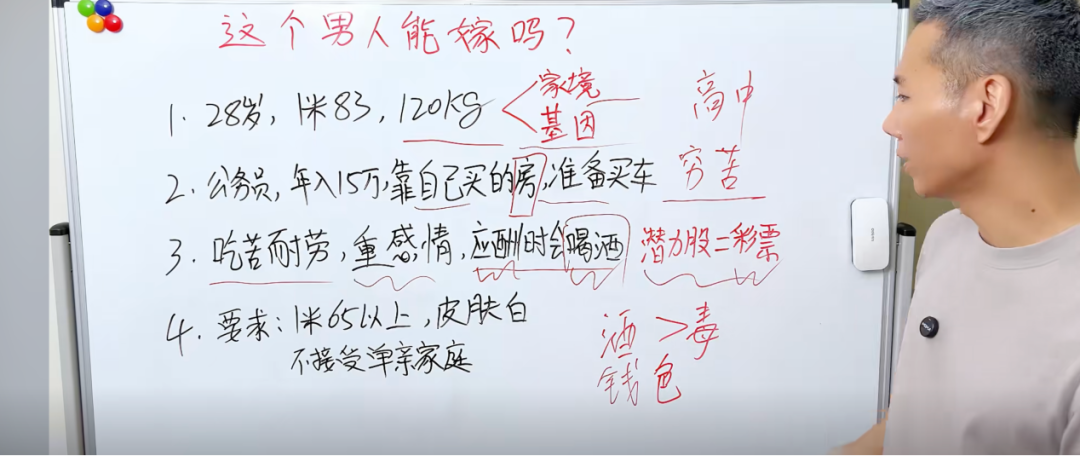 这个男人能嫁吗？
1. 28岁，1米83，120kg
家境
基因
高中
2. 公务员，年入15万，靠自己买的房，准备买车
穷苦
3. 吃苦耐劳，重感情，应酬时会喝酒
潜力股=彩票
4. 要求：1米65以上，皮肤白
不接受单亲家庭
酒>毒
钱色